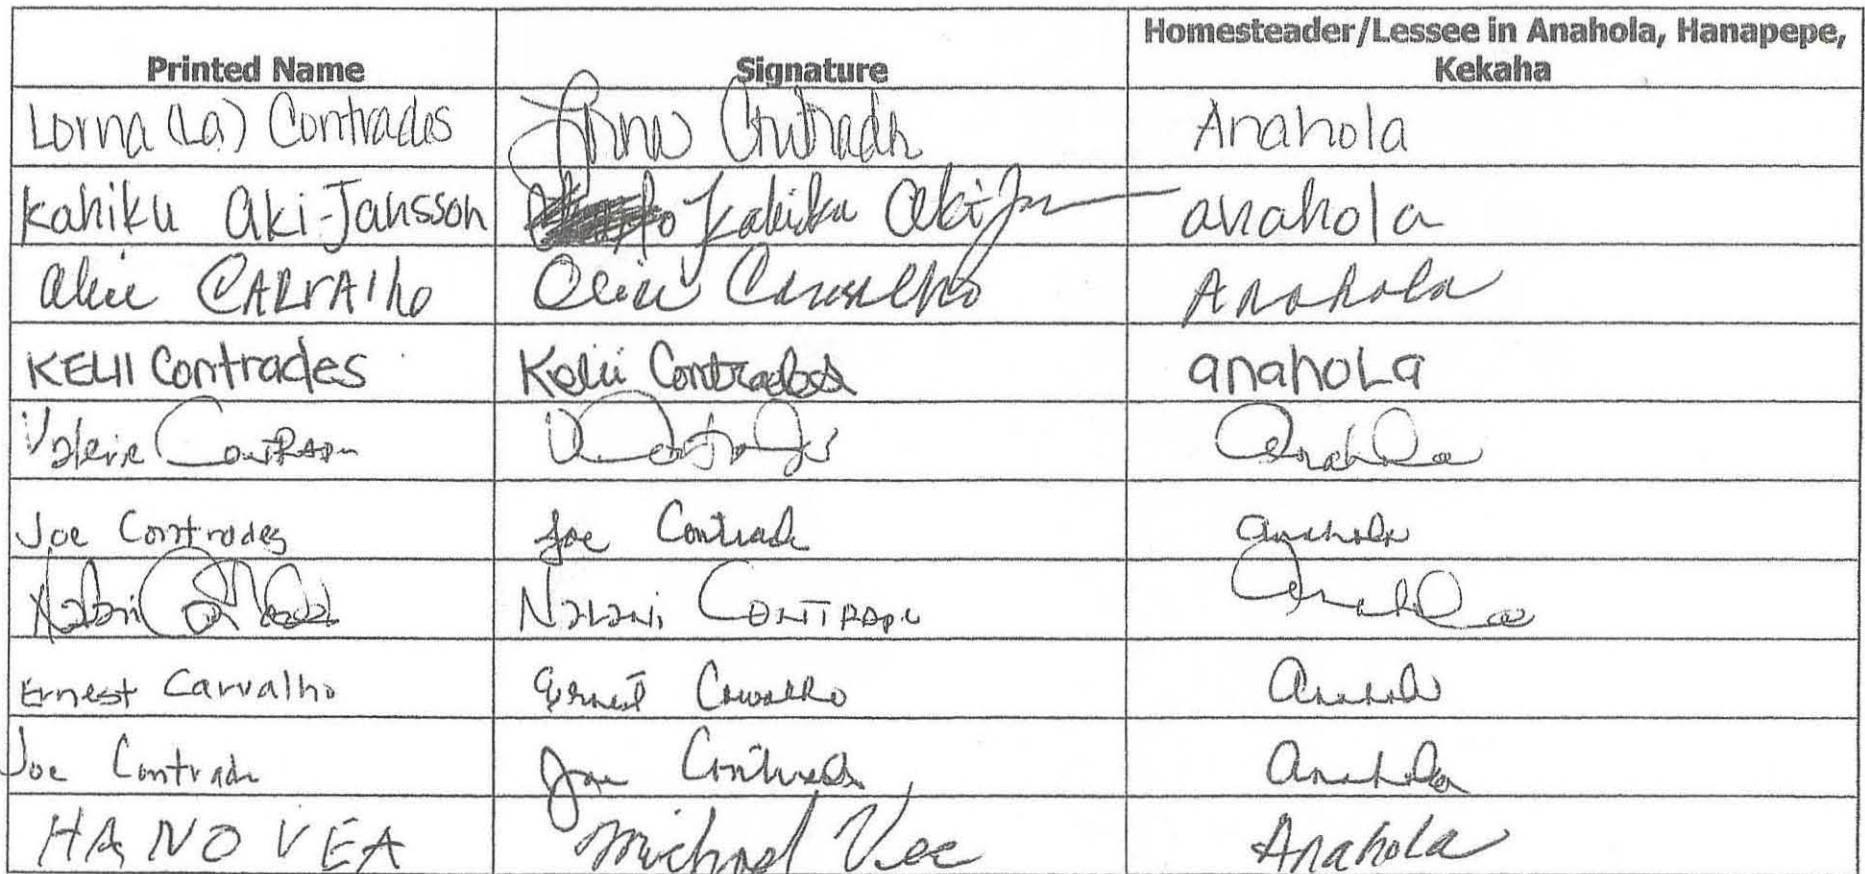 Printed Name Signature Homesteader/Lessee in Anahola, Hanapepe, Kekaha
Lorna (La) Contrades Lorna Contrades Anahola
Kahiku Aki-Jansson Kahiku Aki anahola
Alice CARVAlho Alice Carvalho Anahola
KELII Contrades Kelii Contrades anahoLa
Valerie Contrades V Contrades Anahola
Joe Contrades Joe Contrades anahola
Nalani Contrades Nalani Contrades Anahola
Ernest Carvalho Ernest Carvalho Anahola
Joe Contrade Joe Contrades Anahola
HANO VEA Michael Vea Anahola